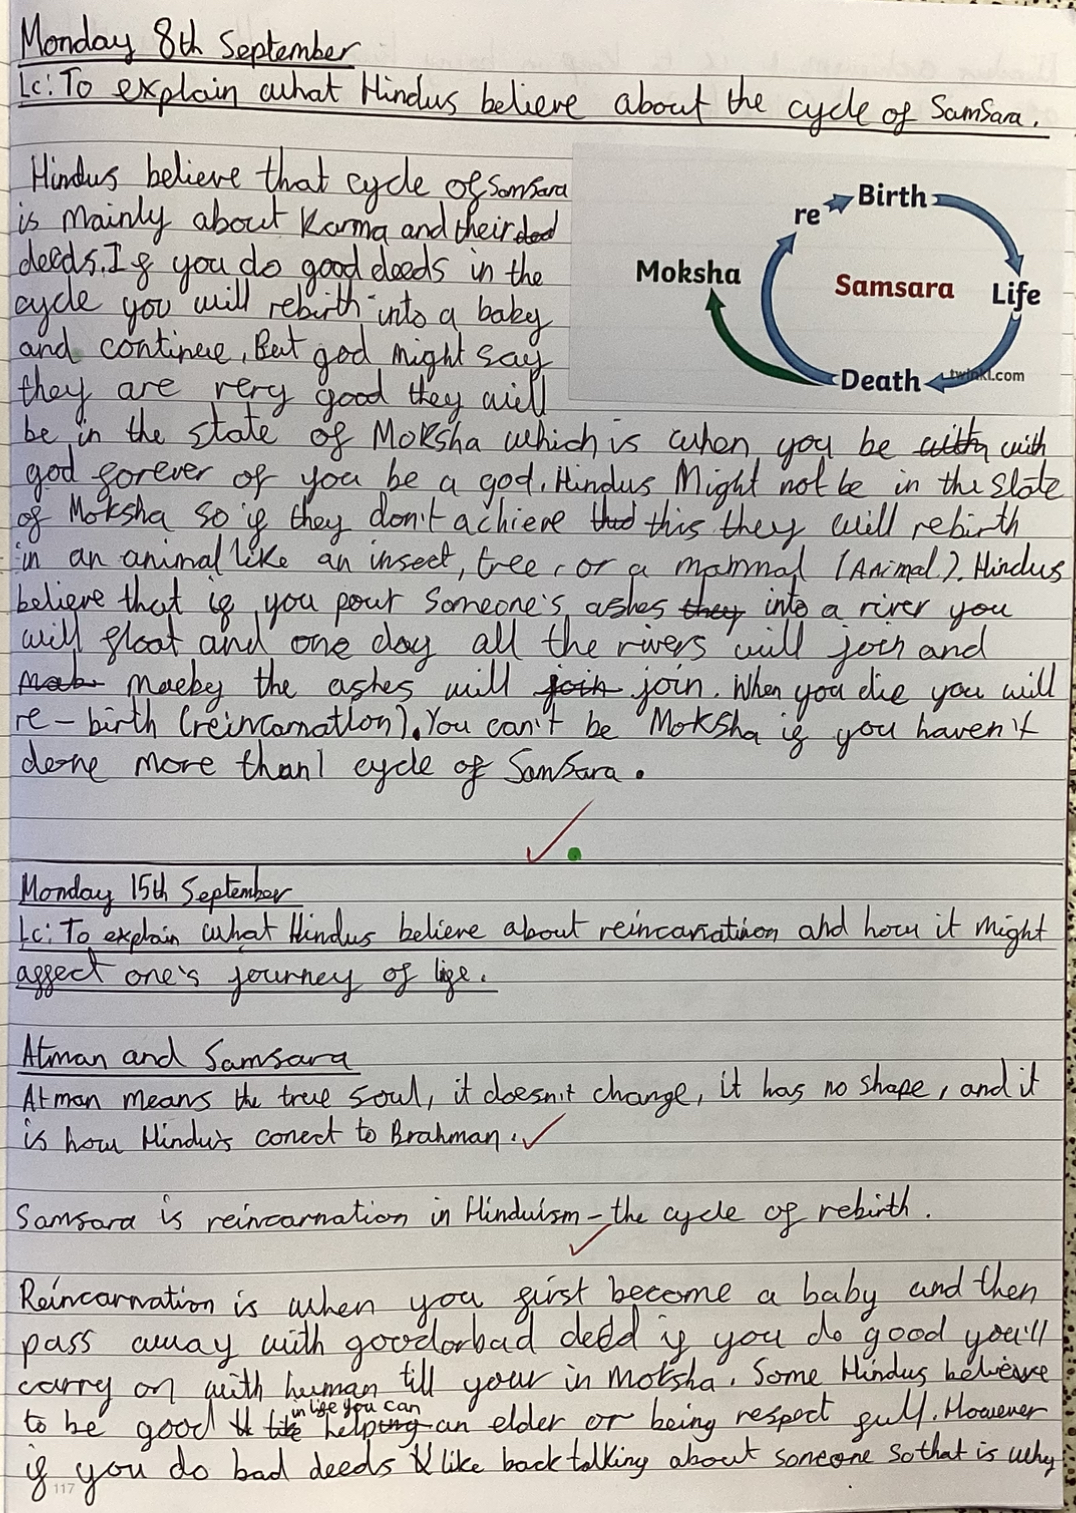 Monday 8th September
Lc: To explain what Hindus believe about the cycle of Samsara.
Hindus believe that cycle of Samsara
is mainly about Karma and their ded
deeds. If you do good deeds in the
cycle you will rebirth into a baby
and continue, But god might say
they are very good they will
re Birth
Moksha Samsara Life
Death twinkl.com
be in the state of Moksha which is when you be with with
god forever of you be a god. Hindus Might not be in the state
of Moksha so if they don't achieve this they will rebirth
in an animal like an insect, tree, or a mammal (Animal). Hindus
believe that if you pour someone's ashes they into a river you
will float and one day all the rivers will join and
maeby the ashes will join join. When you die you will
re-birth (reincarnation). You can't be Moksha if you haven't
done more than 1 cycle of Samsara.
Monday 15th September
Lc: To explain what Hindus believe about reincariation and how it might
affect one's journey of life.
Atman and Samsara
Atman means the true soul, it doesn't change, it has no shape, and it
is how Hindu's conect to Brahman.
Samsara is reincarnation in Hinduism - the cycle of rebirth.
Reincarnation is when you first become a baby and then
pass away with good or bad deed if you do good you'll
carry on with human till your in Moksha. Some Hindus believe
to be good in life you can helping an elder or being respect full. However
if you do bad deeds like back talking about someone so that is why
117